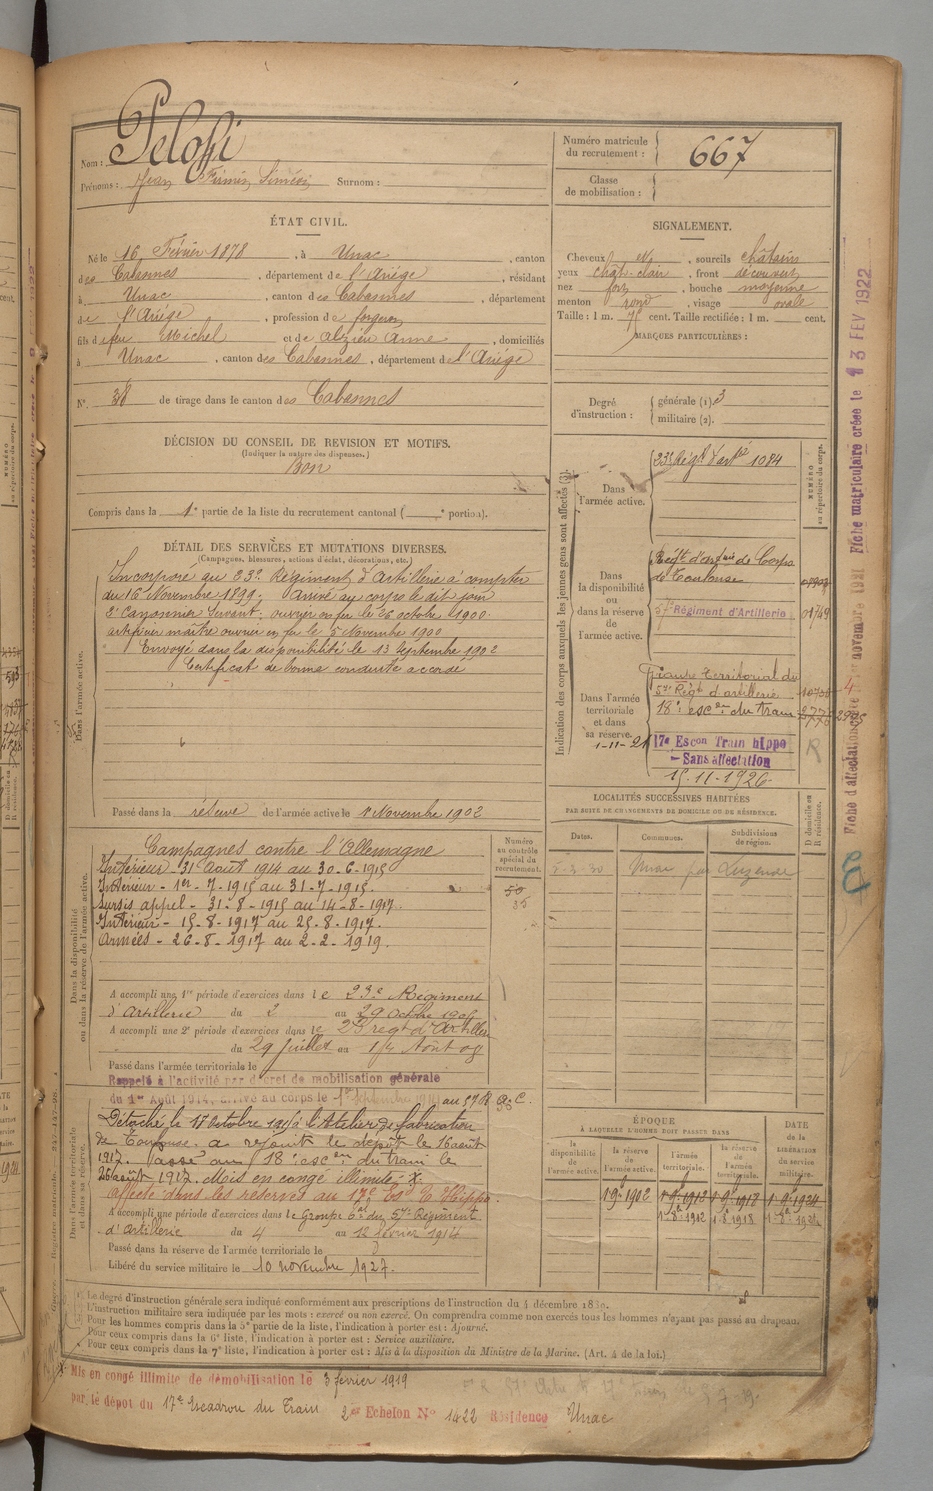 Nom : Pelofi
Prénoms : Jean Firmin Siméon Surnom :
Numéro matricule du recrutement : 667
Classe de mobilisation :
ÉTAT CIVIL.
Né le 16 Février 1878, à Unac, canton
des Cabannes, département de l'Ariège, résidant
à Unac, canton des Cabannes, département
de l'Ariège, profession de forgeron
fils de feu Michel et de Alzieu Anne, domiciliés
à Unac, canton des Cabannes, département de l'Ariège
N° 38 de tirage dans le canton des Cabannes
SIGNALEMENT.
Cheveux et, sourcils châtains
yeux chât-clair, front découvert
nez fort, bouche moyenne
menton rond, visage ovale
Taille : 1 m. 71 cent. Taille rectifiée : 1 m. cent.
MARQUES PARTICULIÈRES :
Degré d'instruction : générale (1). 3
militaire (2).
DÉCISION DU CONSEIL DE REVISION ET MOTIFS.
(Indiquer la nature des dispenses.)
Bon
Compris dans la 1e partie de la liste du recrutement cantonal ( e portion).
DÉTAIL DES SERVICES ET MUTATIONS DIVERSES.
(Campagnes, blessures, actions d'éclat, décorations, etc.)
Dans l'armée active.
Incorporé au 23e Régiment d'Artillerie à compter
du 16 Novembre 1899. Arrivé au corps le dit jour
2e Canonnier Servant. ouvrier en fer le 26 octobre 1900.
artificier maître ouvrier en fer le 5 Novembre 1900
Envoyé dans la disponibilité le 13 Septembre 1902
Certificat de bonne conduite accordé
Passé dans la réserve de l'armée active le 1er Novembre 1902
Indication des corps auxquels les jeunes gens sont affectés (3).
NUMÉRO au répertoire du corps.
Dans l'armée active.
23e Régt d'artie 1084
Dans la disponibilité ou dans la réserve de l'armée active.
Régt d'artie de Corps
de Toulouse
57e Régiment d'Artillerie
Dans l'armée territoriale et dans sa réserve.
Groupe Territorial du
57e Régt d'artillerie
18e escon du train
1-11-21 17e Escon Train hippo
Sans affectation
15.11.1926
R
LOCALITÉS SUCCESSIVES HABITÉES
PAR SUITE DE CHANGEMENTS DE DOMICILE OU DE RÉSIDENCE.
Dates. Communes. Subdivisions de région. D domicile ou R résidence.
Unac par Luzenac
Dans la disponibilité ou dans la réserve de l'armée active.
Numéro au contrôle spécial du recrutement.
Campagnes contre l'Allemagne
Intérieur - 31 Août 1914 au 30-6-1915
Intérieur - 1er-7-1915 au 31-7-1915.
Sursis appel - 31-8-1915 au 14-8-1917.
Intérieur - 15-8-1917 au 25-8-1917.
Armées - 26-8-1917 au 2-2-1919.
A accompli une 1re période d'exercices dans le 23e Régiment
d'Artillerie du 2 au 29 Octobre
A accompli une 2e période d'exercices dans le 23 regt d'Artillerie
du 29 Juillet au Août 08
Passé dans l'armée territoriale le
Rappelé à l'activité par décret de mobilisation générale
du 1er Août 1914, arrivé au corps le
Dans l'armée territoriale et dans sa réserve.
Détaché le 17 Octobre à l'Atelier de fabrication
de Toulouse. a rejoint le dépôt le 16 août
1917. Passé au 18e escon du train le
26 août 1917. Mis en congé illimité. x.
affecté dans les réserves au 17e Esc T. Hippo
A accompli une période d'exercices dans le Groupe du 57e Régiment
d'Artillerie du 4 au 12 février 1914
Passé dans la réserve de l'armée territoriale le
Libéré du service militaire le 10 novembre 1927.
ÉPOQUE
À LAQUELLE L'HOMME DOIT PASSER DANS
DATE de la LIBÉRATION du service militaire.
la disponibilité de l'armée active. la réserve de l'armée active. l'armée territoriale. la réserve de l'armée territoriale.
1-9-1902 1-9-1912 1-9-1918 1-9-1924
1-8-1912 1-8-1918 1-8-1924
Le degré d'instruction générale sera indiqué conformément aux prescriptions de l'instruction du 4 décembre 1889.
L'instruction militaire sera indiquée par les mots : exercé ou non exercé. On comprendra comme non exercés tous les hommes n'ayant pas passé au drapeau.
Pour les hommes compris dans la 5e partie de la liste, l'indication à porter est : Ajourné.
Pour ceux compris dans la 6e liste, l'indication à porter est : Service auxiliaire.
Pour ceux compris dans la 7e liste, l'indication à porter est : Mis à la disposition du Ministre de la Marine. (Art. 4 de la loi.)
x Mis en congé illimité de démobilisation le 3 février 1919
par le dépot du 17e Escadron du Train 2e Echelon No 1422 Résidence Unac
Fiche matriculaire créée le 13 FEV 1922
Fiche d'affectation novembre 1921